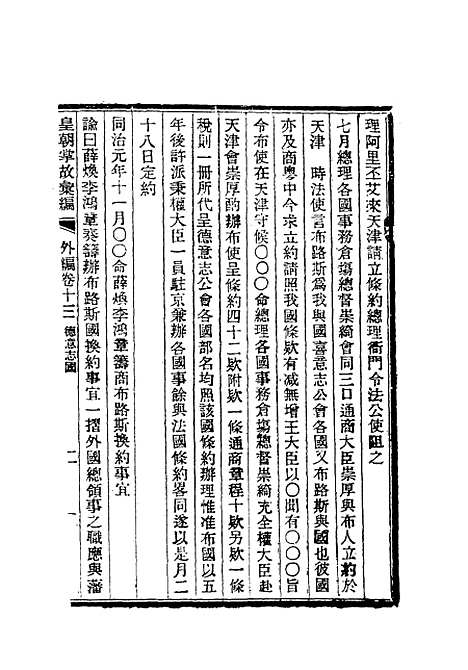 理阿里丕艾來天津請立條約總理衙門令法公使阻之
七月總理各國事務倉塲總督崇綺會同三口通商大臣崇厚與布人立約於
天津　時法使言布路斯爲我與國喜意志公會各國又布路斯與國也彼國
亦及商粵中今求立約請照我國條欵有減無增王大臣以〇聞有〇〇〇旨
令布使在天津守候〇〇〇命總理各國事務倉塲總督崇綺充全權大臣赴
天津會崇厚酌辦布使呈條約四十二欵附欵一條通商章程十欵另欵一條
稅則一冊所代呈德意志公會各國部名均照該國條約辦理惟准布國以五
年後許派秉權大臣一員駐京兼辦各國事餘與法國條約畧同遂以是月二
十八日定約
同治元年十一月〇〇命薛煥李鴻章籌商布路斯換約事宜
諭曰薛煥李鴻章奏籌辦布路斯國換約事宜一摺外國總領事之職應與藩
皇朝掌故彙編　外編卷十三　德意志國　二